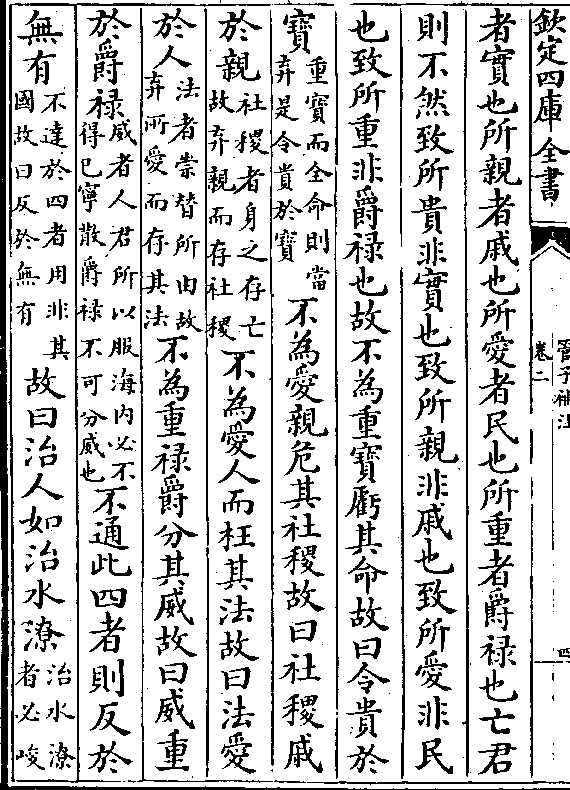 欽定四庫全書
管子補注
卷二
四
者寳也所親者戚也所愛者民也所重者爵祿也亡君
則不然致所貴非寳也致所親非戚也致所愛非民
也致所重非爵祿也故不為重寳虧其命故曰令貴於
寳重寳而全命則當
弃是令貴於寳不為愛親危其社稷故曰社稷戚
於親社稷者身之存亡
故弃親而存社稷不為愛人而枉其法故曰法愛
於人法者崇替所由故
弃所愛而存其法不為重祿爵分其威故曰威重
於爵祿威者人君所以服海内必不
得已寧散爵祿不可分威也不通此四者則反於
無有不達於四者用非其
國故曰反於無有故曰治人如治水潦治水潦
者必峻